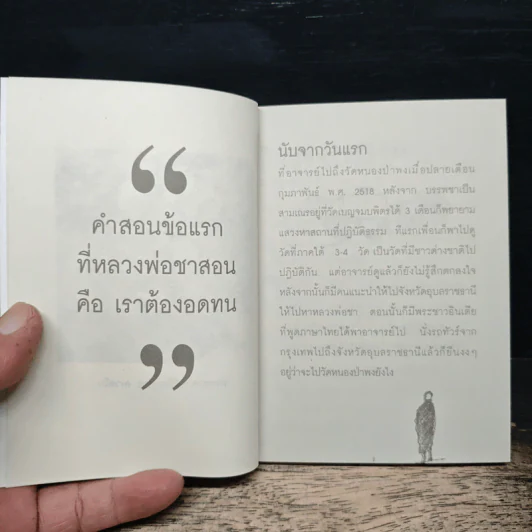 คำสอนข้อแรก
ที่หลวงพ่อชาสอน
คือ เราต้องอดทน
นับจากวันแรก
ที่อาจารย์ไปถึงวัดหนองป่าพงเมื่อปลายเดือน
กุมภาพันธ์ พ.ศ. 2518 หลังจาก บรรพชาเป็น
สามเณรอยู่ที่วัดเบญจมบพิตรได้ 3 เดือนก็พยายาม
แสวงหาสถานที่ปฏิบัติธรรม ทีแรกเพื่อนก็พาไปดู
วัดที่ภาคใต้ 3-4 วัด เป็นวัดที่มีชาวต่างชาติไป
ปฏิบัติกัน แต่อาจารย์ดูแล้วก็ยังไม่รู้สึกตกลงใจ
หลังจากนั้นก็มีคนแนะนำให้ไปจังหวัดอุบลราชธานี
ให้ไปหาหลวงพ่อชา ตอนนั้นก็มีพระชาวอินเดีย
ที่พูดภาษาไทยได้พาอาจารย์ไป นั่งรถทัวร์จาก
กรุงเทพไปถึงจังหวัดอุบลราชธานีแล้วก็ยืนงงๆ
อยู่ว่าจะไปวัดหนองป่าพงยังไง